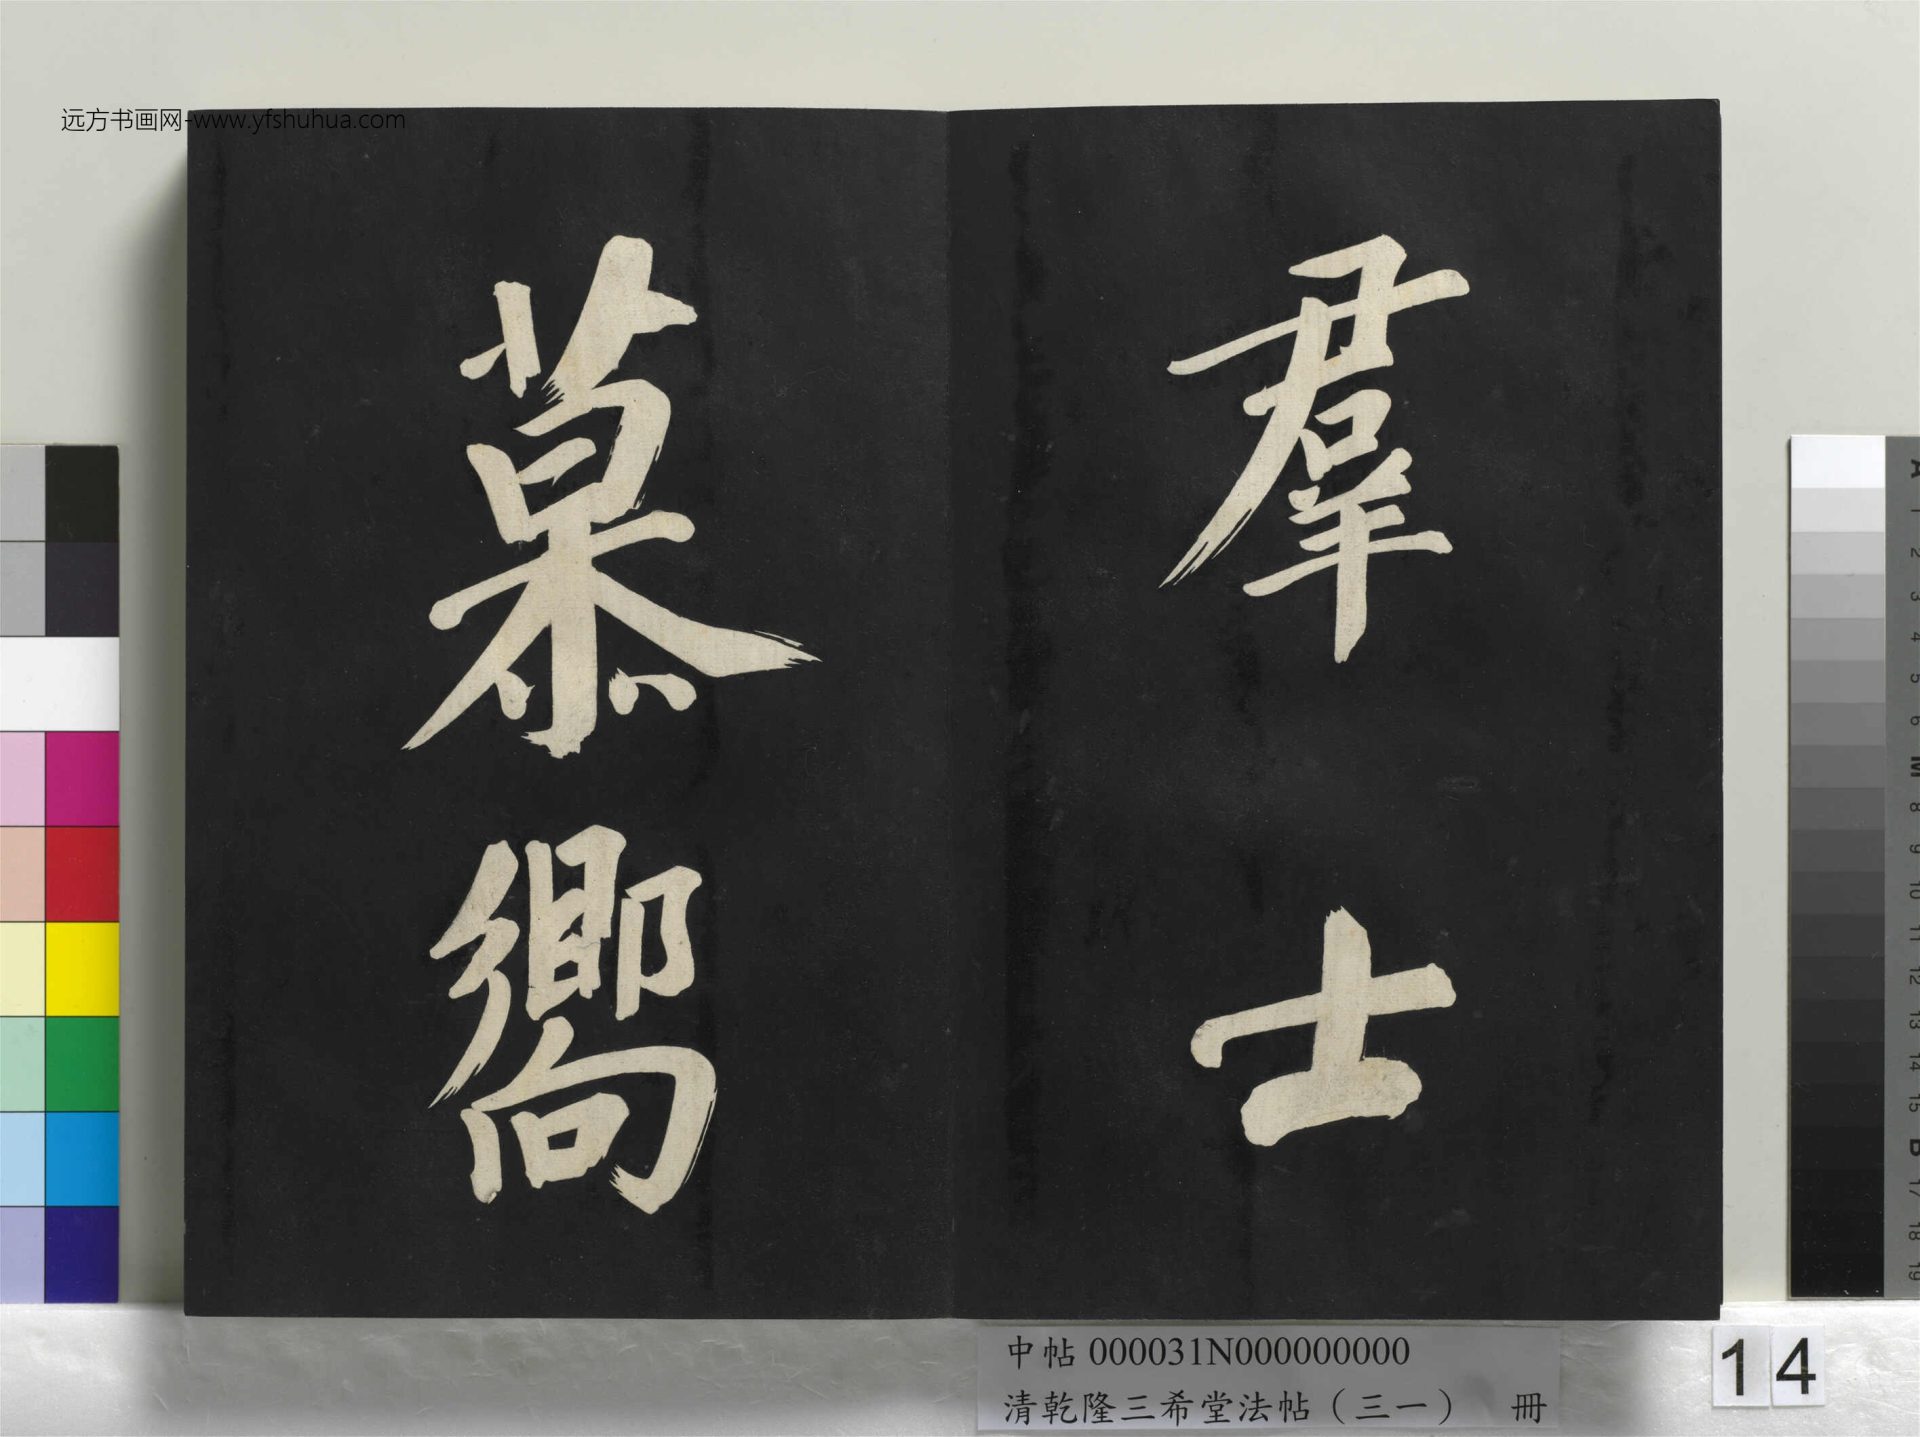 远方书画网-www.yfshuhua.com
羣士
慕嚮
中帖 000031N000000000
清乾隆三希堂法帖（三一） 冊
14
A
1
2
3
4
5
6
M
8
9
10
11
12
13
14
15
B
17
18
19